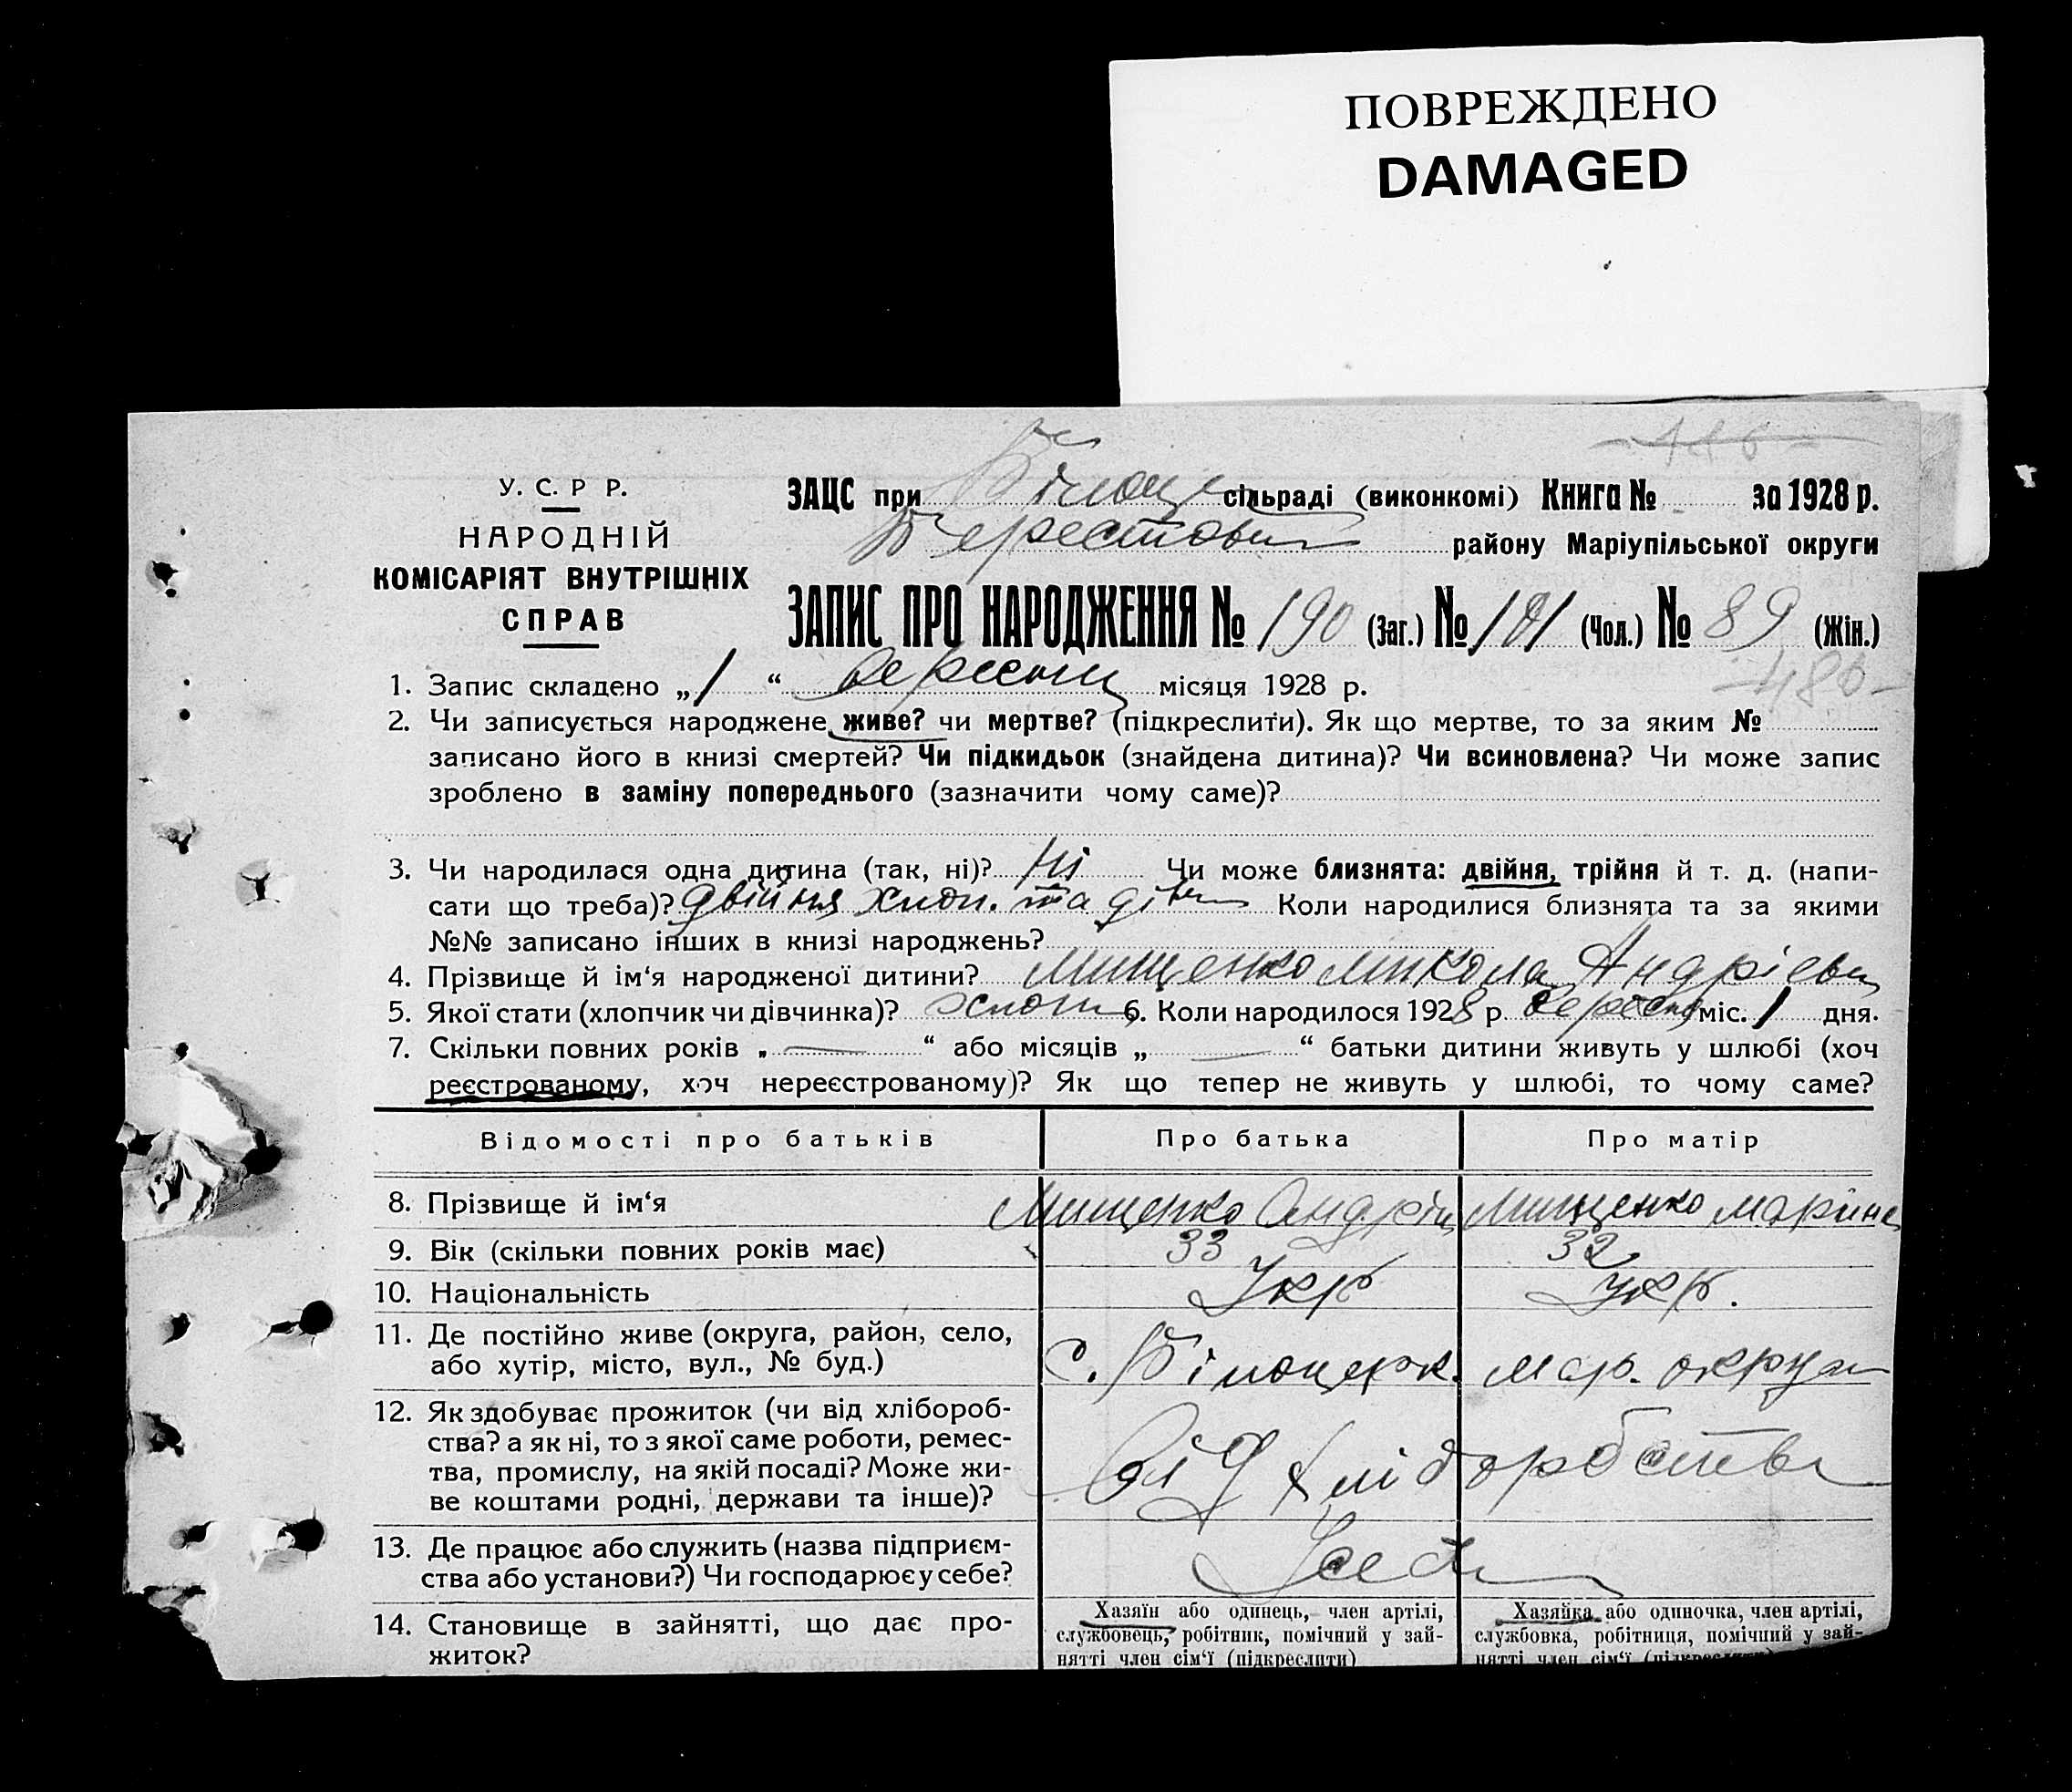 ПОВРЕЖДЕНО
DAMAGED
- 186 -
У. С. Р Р.
НАРОДНІЙ
КОМІСАРІЯТ ВНУТРІШНІХ
СПРАВ
ЗАЦС при Білоце сільраді (виконкомі) Книга № за 1928 р.
Берестов району Маріупільської округи
ЗАПИС ПРО НАРОДЖЕННЯ № 190 (Заг.) № 101 (Чол.) № 89 (Жін.)
- 486 -
1. Запис складено „ 1 “ вересня місяця 1928 р.
2. Чи записується народжене живе? чи мертве? (підкреслити). Як що мертве, то за яким №
записано його в книзі смертей? Чи підкидьок (знайдена дитина)? Чи всиновлена? Чи може запис
зроблено в заміну попереднього (зазначити чому саме)?
3. Чи народилася одна дитина (так, ні)? Ні Чи може близнята: двійня, трійня й т. д. (напи-
сати що треба)? двійня хлоп. та дівч Коли народилися близнята та за якими
№№ записано інших в книзі народжень?
4. Прізвище й ім‘я народженої дитини? Мищенко Микола Андрієви
5. Якої стати (хлопчик чи дівчинка)? хлопч 6. Коли народилося 1928 р. вересня міс. 1 дня.
7. Скільки повних років „ — “ або місяців „ — “ батьки дитини живуть у шлюбі (хоч
реєстрованому, хоч нереєстрованому)? Як що тепер не живуть у шлюбі, то чому саме?
Відомості про батьків Про батька Про матір
8. Прізвище й ім‘я Мищенко Андрій Мищенко Марина
9. Вік (скільки повних років має) 33 32
10. Національність Укр Укр.
11. Де постійно живе (округа, район, село,
або хутір, місто, вул., № буд.) с. Білоцерк. Мар. округи
12. Як здобуває прожиток (чи від хлібороб-
ства? а як ні, то з якої саме роботи, ремес-
тва, промислу, на якій посаді? Може жи-
ве коштами родні, держави та інше)? Від хліборобства
13. Де працює або служить (назва підприєм-
ства або установи?) Чи господарює у себе? У себе
14. Становище в зайнятті, що дає про-
житок?
Хазяїн або одинець, член артілі,
службовець, робітник, помічний у зай-
нятті член сім‘ї (підкреслити)
Хазяйка або одиночка, член артілі,
службовка, робітниця, помічний у зай-
нятті член сім‘ї (підкреслити)